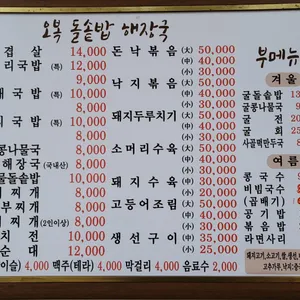 오복 돌솥밥 해장국
겹살 14,000
리국밥 (특) 12,000
9,000
국밥 (특) 10,000
8,000
국밥 (특) 10,000
8,000
콩나물국 8,000
해장국 (국내산) 8,000
물돌솥밥 8,000
찌개 8,000
부찌개 8,000
찌개 (2인이상) 8,000
치전 10,000
순대 12,000
돈낙볶음 (大) 50,000
(中) 40,000
낙지볶음 (大) 50,000
(中) 40,000
돼지두루치기 (大) 50,000
(中) 40,000
소머리수육 (大) 50,000
(中) 40,000
돼지수육 (大) 40,000
(中) 30,000
고등어조림 (大) 50,000
(中) 40,000
생선구이 (大) 35,000
(中) 25,000
이슬) 4,000 맥주(테라) 4,000 막걸리 4,000 음료수 2,000
부메뉴
겨울
굴돌솥밥 13
굴콩나물국
굴전 20
굴회 25
사골떡만두국 8
여름
콩국수
비빔국수
(곱배기)
공기밥
볶음밥
라면사리